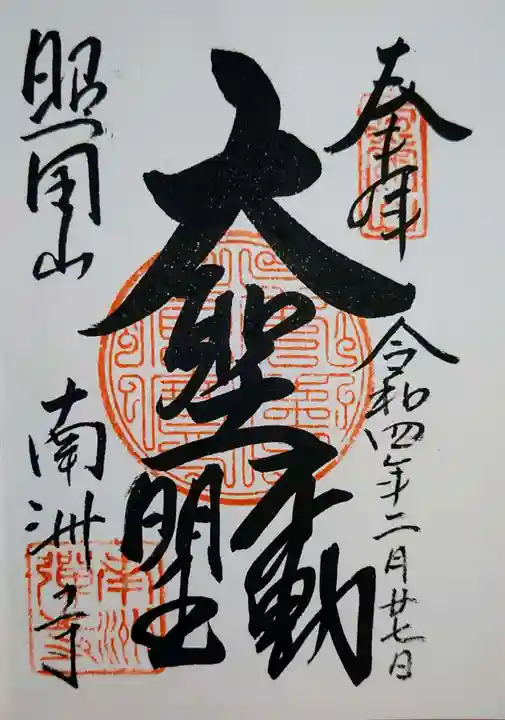 奉拝
令和四年二月廿七日
大聖不動明王
照用山
南洲寺